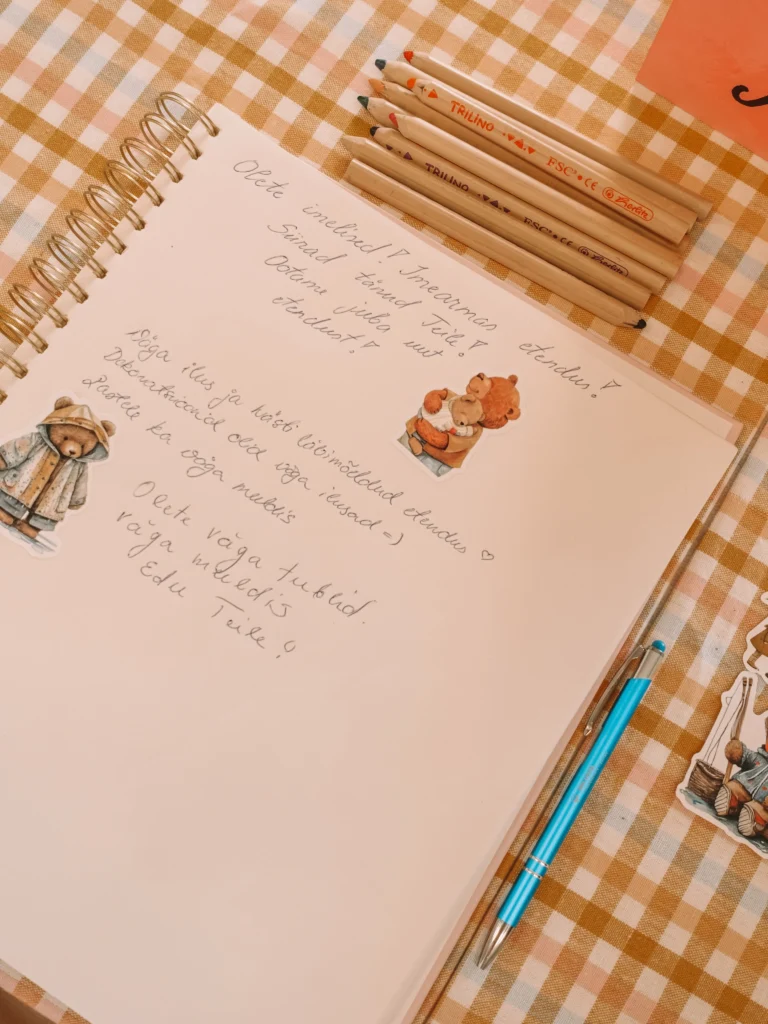 TRILINO FSC® CE Berlin
TRILINO FSC® CE Berlin
Olete imelised! Imearmas etendus!
Suured tänud Teile!
Ootame juba uut
etendust!
Väga ilus ja hästi läbimõeldud etendus ♡
Dekoratsioonid olid väga ilusad =)
Lastele ka väga meeldis
Olete väga tublid.
väga meeldis
Edu Teile!